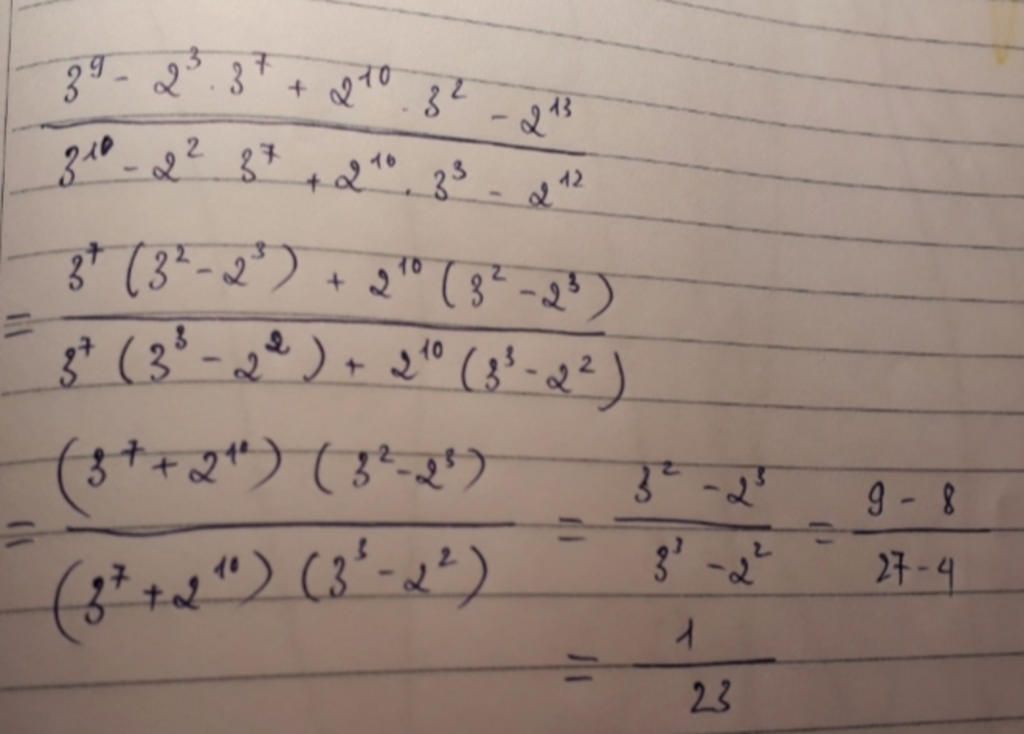 3⁹ - 2³ . 3⁷ + 2¹⁰ . 3² - 2¹³
3¹⁰ - 2² 3⁷ + 2¹⁰ . 3³ - 2¹²
= 3⁷ (3² - 2³) + 2¹⁰ (3² - 2³)
3⁷ (3³ - 2²) + 2¹⁰ (3³ - 2²)
= (3⁷ + 2¹⁰) (3² - 2³) = 3² - 2³ = 9 - 8
(3⁷ + 2¹⁰) (3³ - 2²) 3³ - 2² 27 - 4
= 1
23